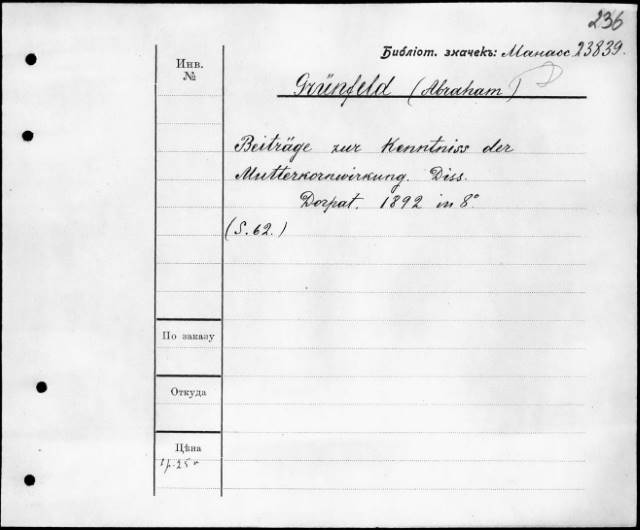 236
Библіот. значекъ: Манасс 23839.
Инв.
№
Grünfeld (Abraham)
Beiträge zur Kenntniss der
Mutterkornwirkung. Diss.
Dorpat. 1892 in 8°
(S. 62.)
По заказу
Откуда
Цѣна
1р.25к